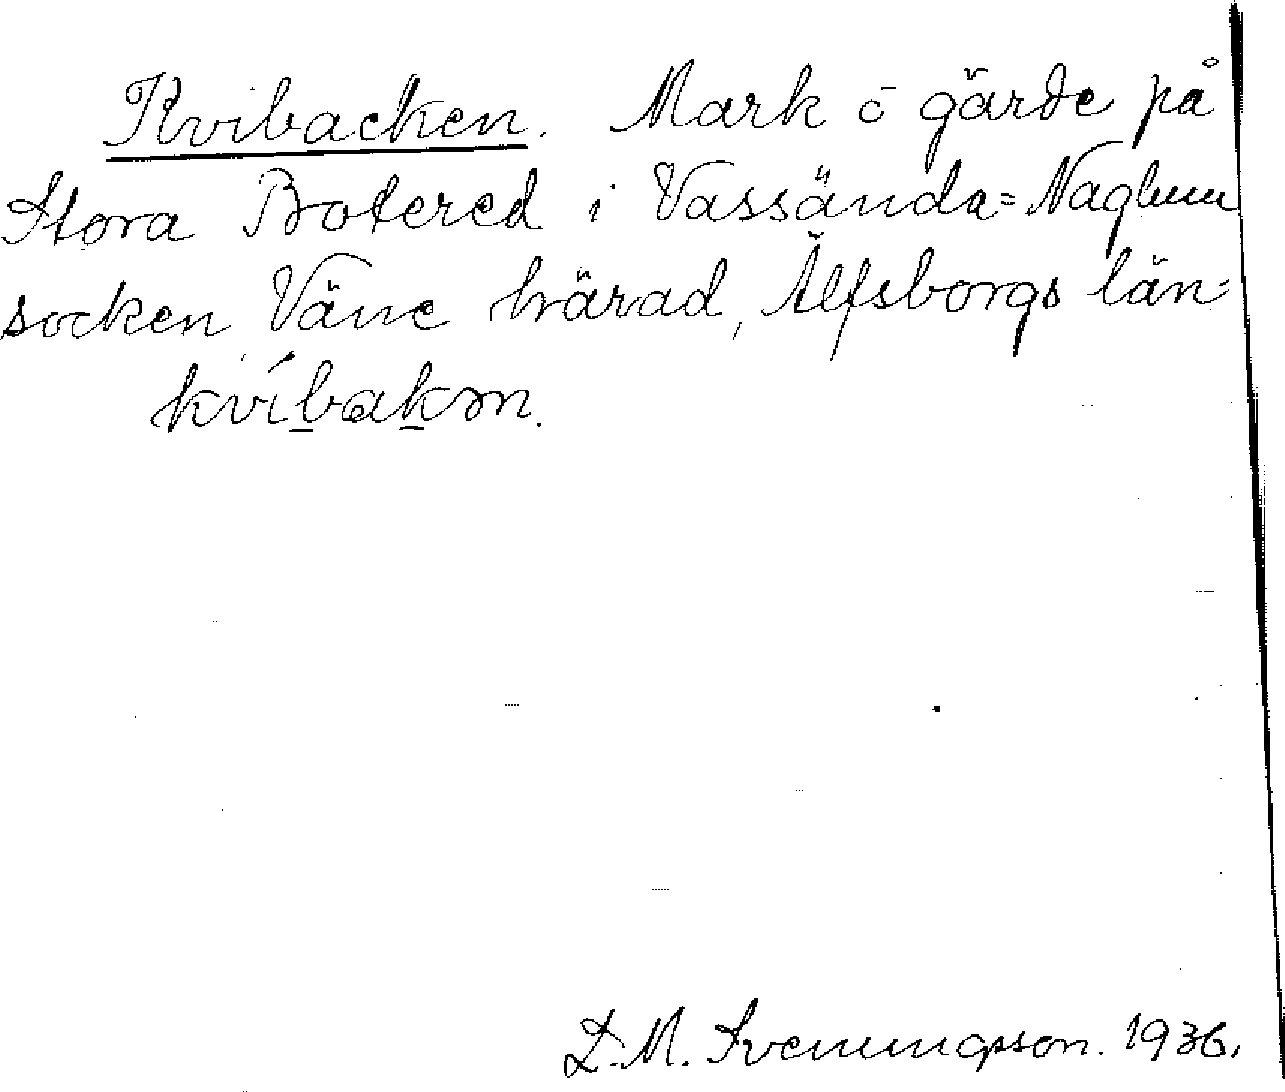 Kvibacken. Mark o gärde på
Stora Botered i Vassända=Naglum
socken Väne härad, Älfsborgs län-
kvíbakən.
D. M. Svenungsson. 1936.